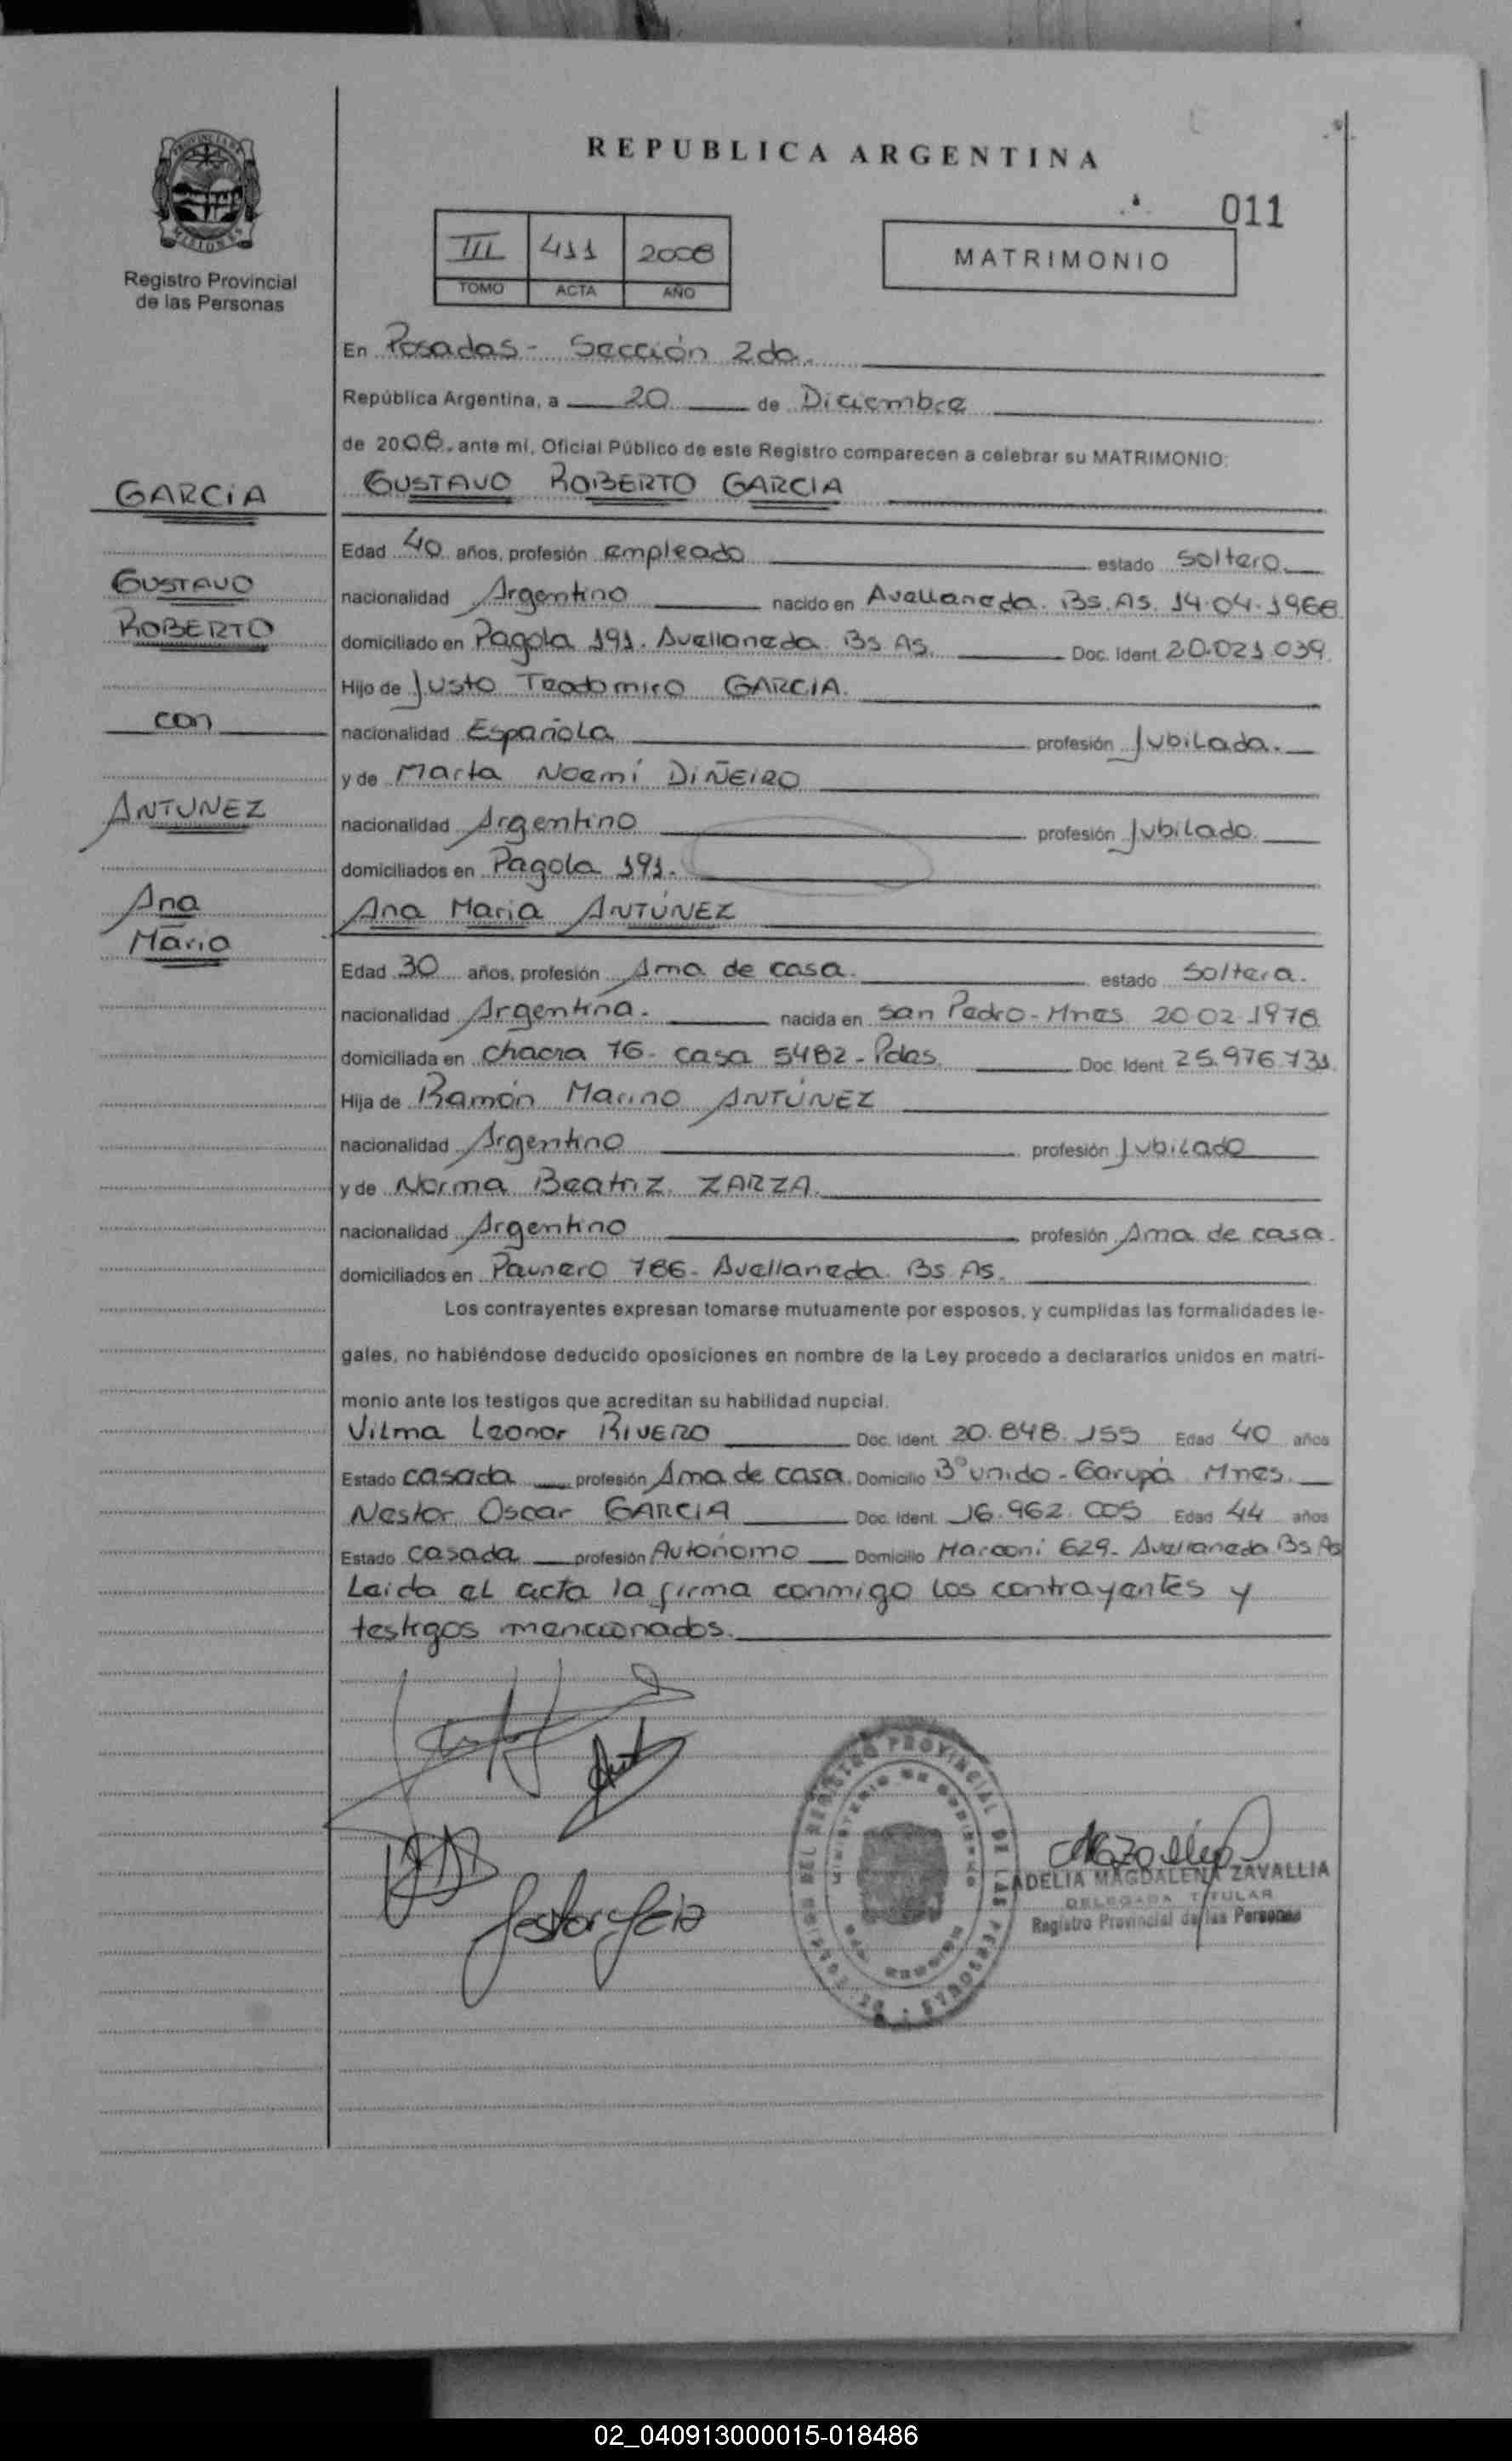 REPUBLICA ARGENTINA
011
III 411 2006
TOMO ACTA AÑO
MATRIMONIO
Registro Provincial
de las Personas
En Posadas - Sección 2da.
República Argentina, a 20 de Diciembre
de 2006, ante mí, Oficial Público de este Registro comparecen a celebrar su MATRIMONIO:
GARCIA
GUSTAVO
ROBERTO
con
ANTUNEZ
Ana
Maria
GUSTAVO ROBERTO GARCIA
Edad 40 años, profesión empleado estado soltero
nacionalidad Argentino nacido en Avellaneda. Bs. As. 14.04.1966
domiciliado en Pagola 191. Avellaneda. Bs As. Doc. Ident. 20.021.039.
Hijo de Justo Teodomiro GARCIA.
nacionalidad Española profesión Jubilada.
y de Marta Noemí DIÑEIRO
nacionalidad Argentino profesión Jubilado.
domiciliados en Pagola 191.
Ana Maria ANTÚNEZ
Edad 30 años, profesión Ama de casa. estado soltera.
nacionalidad Argentina. nacida en San Pedro - Mnes 20 02 1976
domiciliada en chacra 76 - casa 5482 - Pdas. Doc. Ident. 25.976.731.
Hija de Ramón Marino ANTÚNEZ
nacionalidad Argentino profesión Jubilado
y de Norma Beatriz ZARZA.
nacionalidad Argentino profesión Ama de casa.
domiciliados en Paunero 786 - Avellaneda. Bs As.
Los contrayentes expresan tomarse mutuamente por esposos, y cumplidas las formalidades le-
gales, no habiéndose deducido oposiciones en nombre de la Ley procedo a declararlos unidos en matri-
monio ante los testigos que acreditan su habilidad nupcial.
Vilma Leonor RIVERO Doc. Ident. 20.848.155 Edad 40 años
Estado casada profesión Ama de casa. Domicilio Bº unido - Garupá Mnes.
Nestor Oscar GARCIA Doc. Ident. 16.962.005 Edad 44 años
Estado casada profesión Autónomo Domicilio Marconi 629 - Avellaneda Bs As
Leida el acta la firma conmigo los contrayentes y
testigos mencionados.
DEL REGISTRO PROVINCIAL DE LAS PERSONAS
MINISTERIO DE GOBIERNO
ADELIA MAGDALENA ZAVALLIA
DELEGADA TITULAR
Registro Provincial de las Personas
02_040913000015-018486